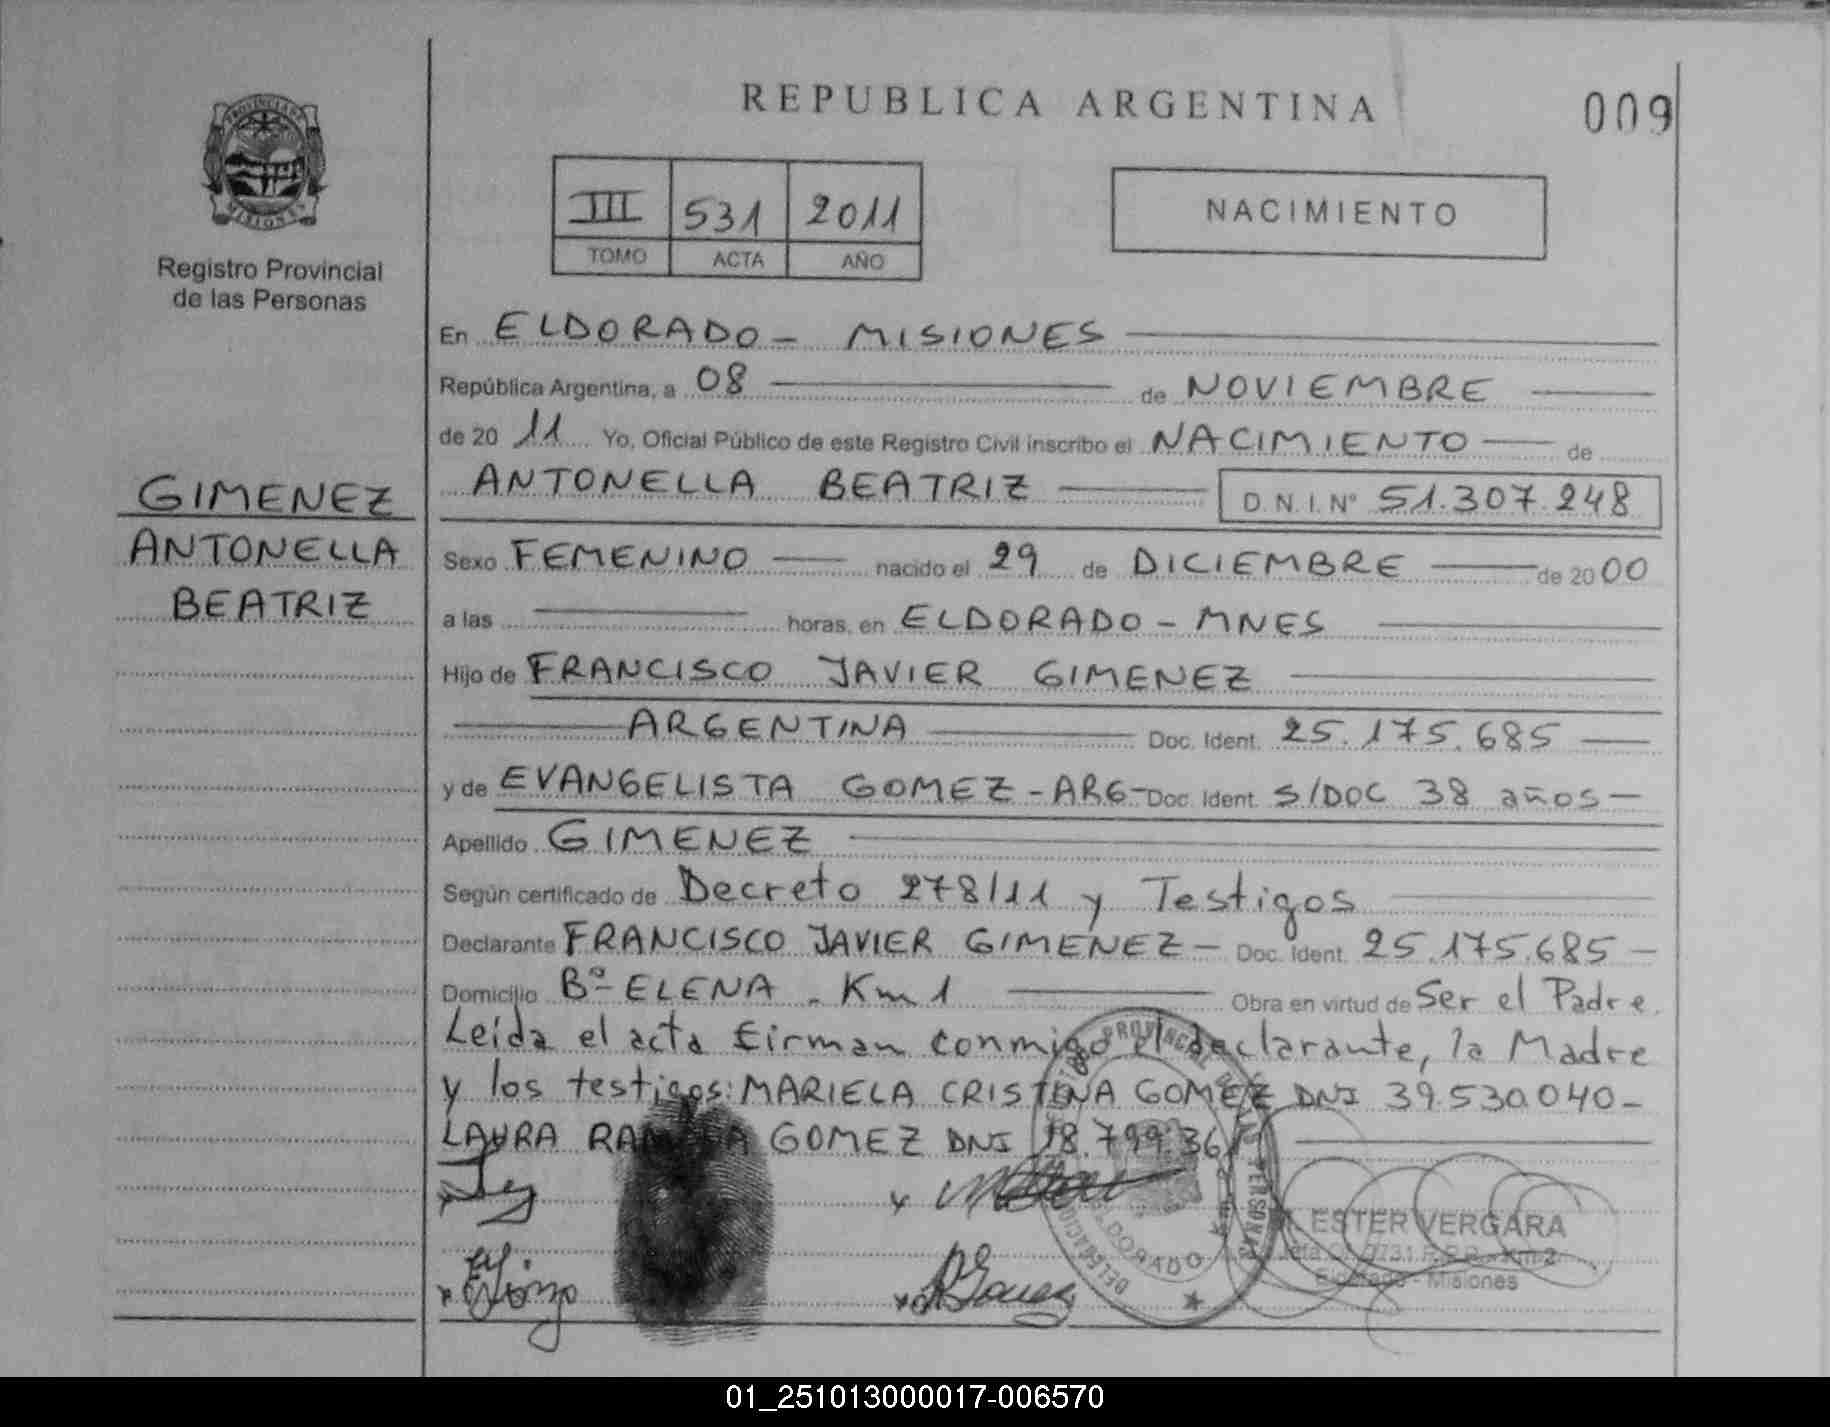 REPUBLICA ARGENTINA
009
PROVINCIA DE
MISIONES
Registro Provincial
de las Personas
III 531 2011
TOMO ACTA AÑO
NACIMIENTO
En ELDORADO - MISIONES
República Argentina, a 08 de NOVIEMBRE
de 20 11 Yo, Oficial Público de este Registro Civil inscribo el NACIMIENTO de
GIMENEZ
ANTONELLA
BEATRIZ
ANTONELLA BEATRIZ D.N.I.Nº 51.307.248
Sexo FEMENINO nacido el 29 de DICIEMBRE de 20 00
a las horas, en ELDORADO - MNES
Hijo de FRANCISCO JAVIER GIMENEZ
ARGENTINA Doc. Ident. 25.175.685
y de EVANGELISTA GOMEZ - ARG- Doc. Ident. S/DOC 38 años -
Apellido GIMENEZ
Según certificado de Decreto 278/11 y Testigos
Declarante FRANCISCO JAVIER GIMENEZ - Doc. Ident. 25.175.685 -
Domicilio Bº ELENA - Km 1 Obra en virtud de Ser el Padre.
Leída el acta firman conmigo el declarante, la Madre
y los testigos: MARIELA CRISTINA GOMEZ DNI 39.530.040 -
LAURA GOMEZ DNI
ESTER VERGARA
Km 2
Eldorado - Misiones
DELEGACION ELDORADO
01_251013000017-006570